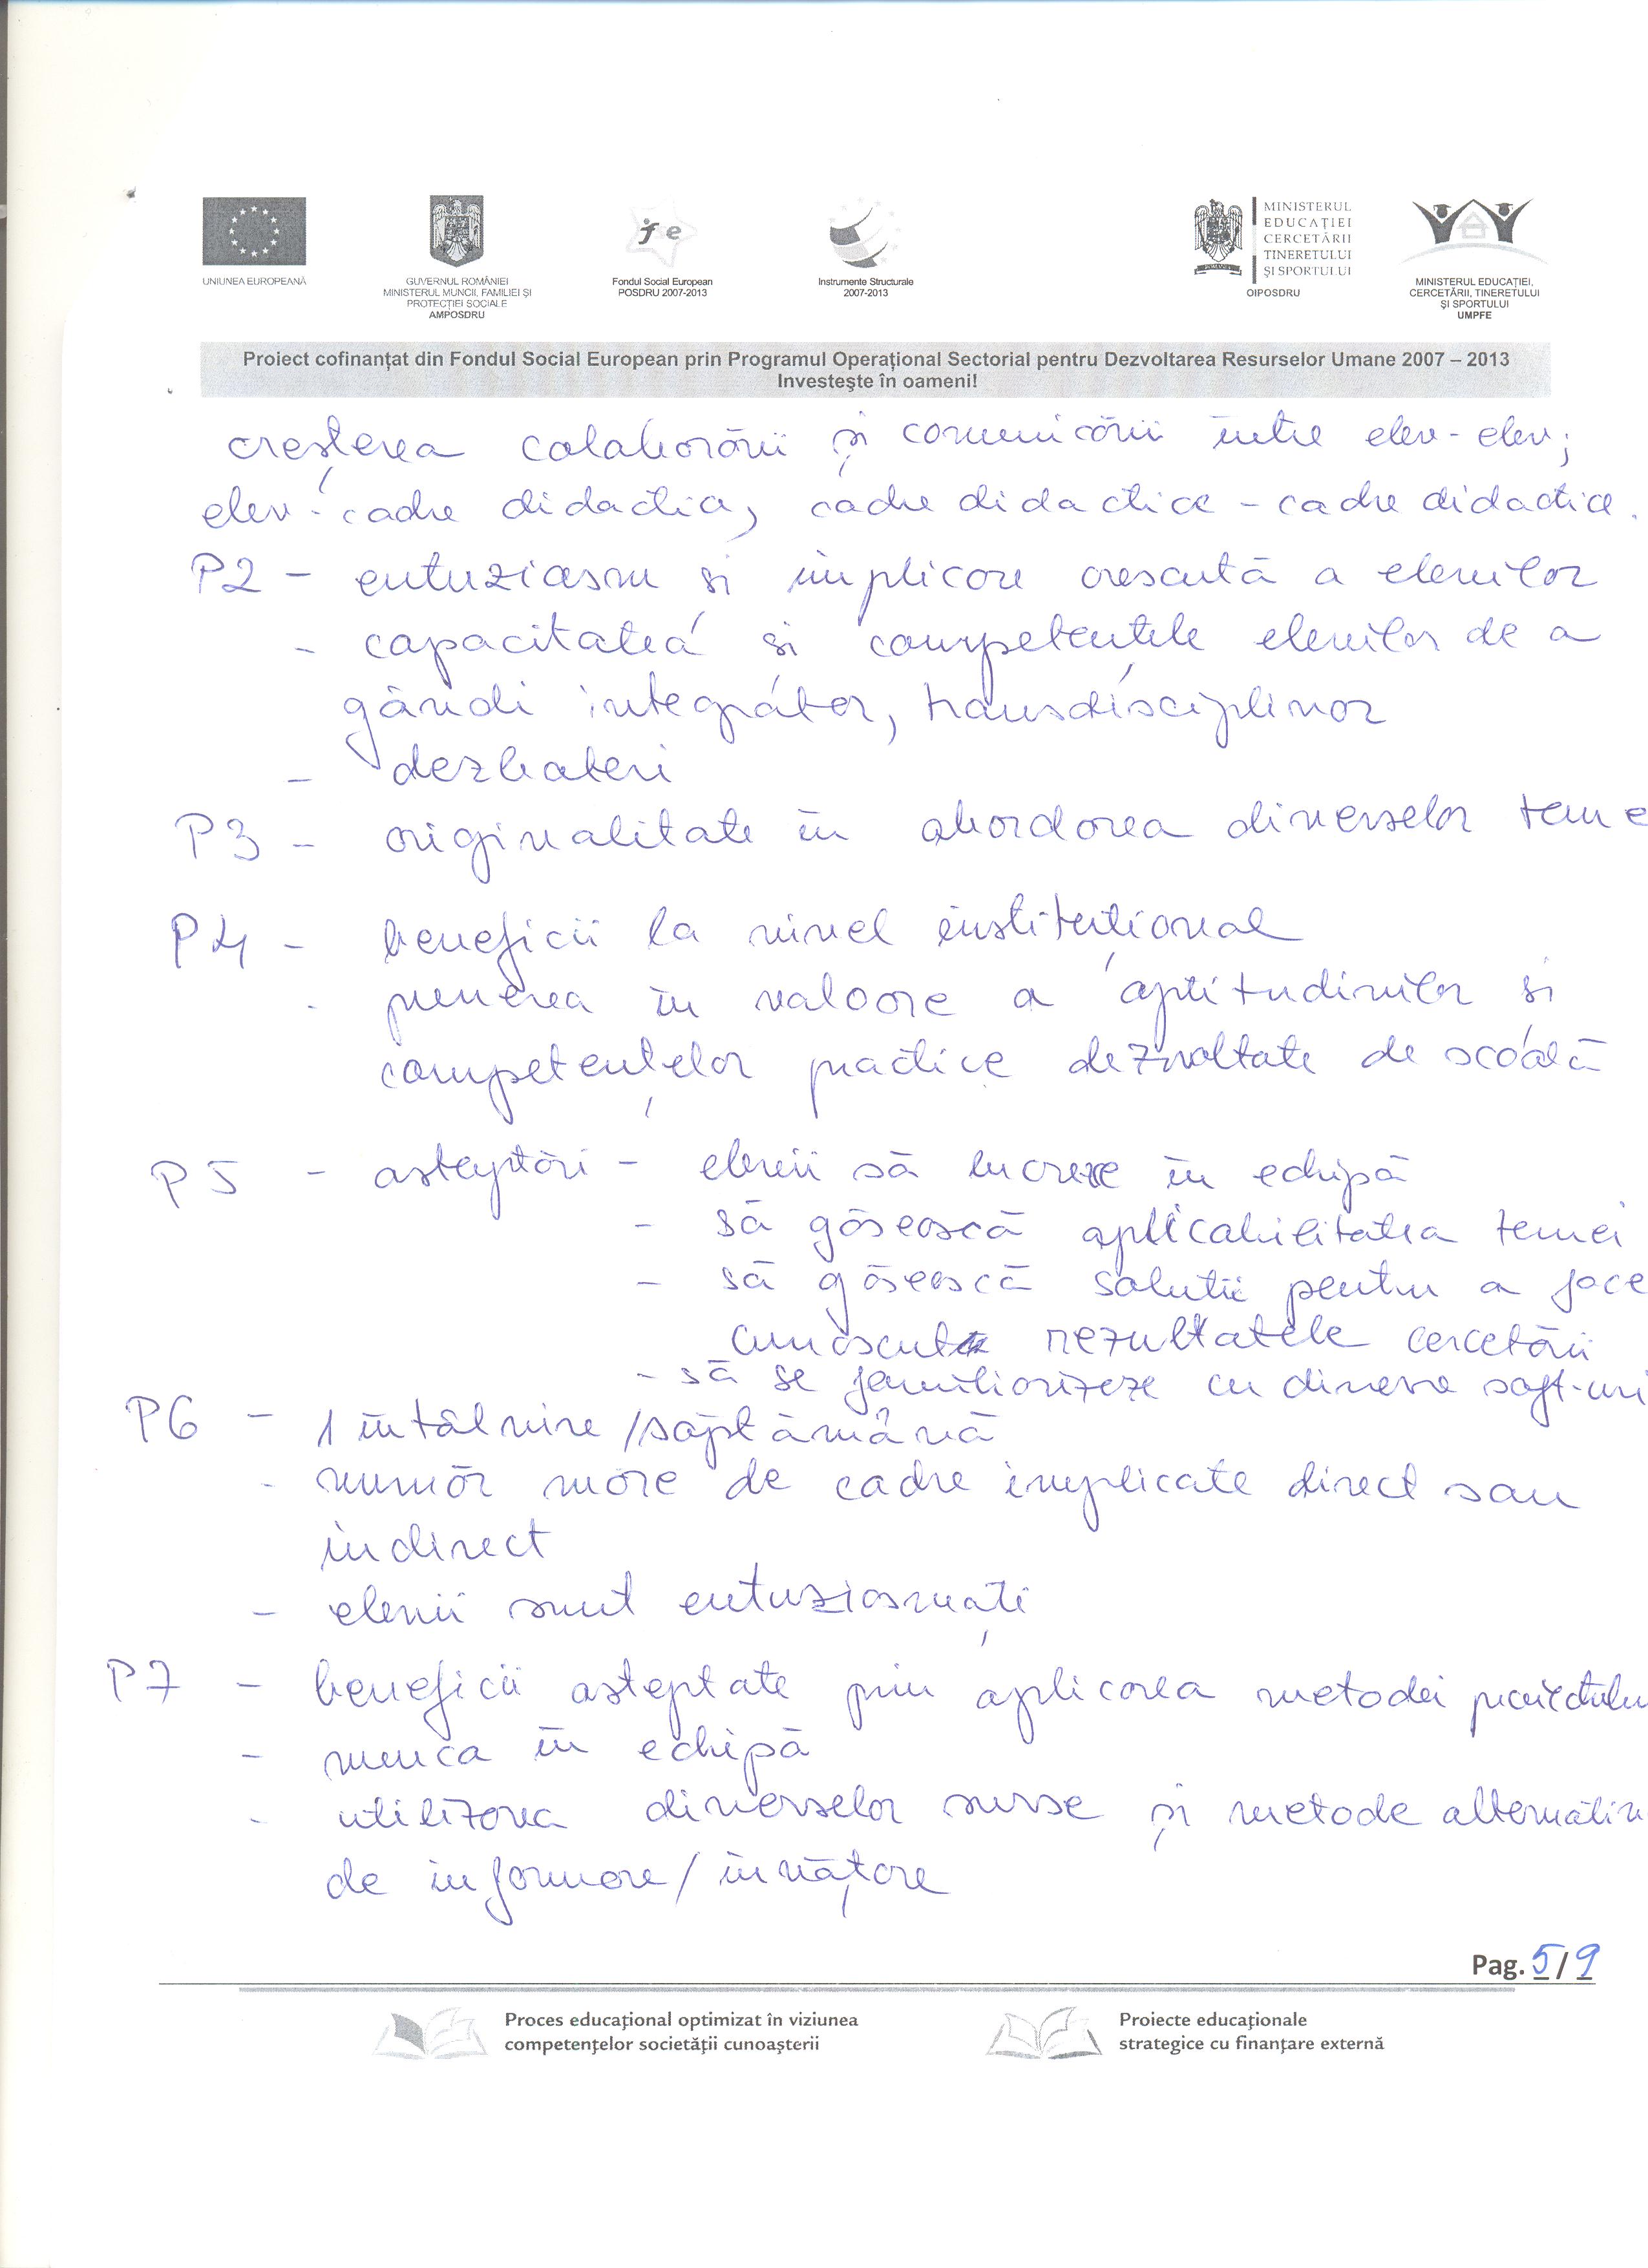 UNIUNEA EUROPEANĂ
GUVERNUL ROMÂNIEI
MINISTERUL MUNCII, FAMILIEI ŞI
PROTECŢIEI SOCIALE
AMPOSDRU
Fondul Social European
POSDRU 2007-2013
Instrumente Structurale
2007-2013
MINISTERUL
EDUCAŢIEI
CERCETĂRII
TINERETULUI
ŞI SPORTULUI
OIPOSDRU
MINISTERUL EDUCAŢIEI,
CERCETĂRII, TINERETULUI
ŞI SPORTULUI
UMPFE
Proiect cofinanţat din Fondul Social European prin Programul Operaţional Sectorial pentru Dezvoltarea Resurselor Umane 2007 – 2013
Investeşte în oameni!
creşterea colaborării şi comunicării între elev - elev;
elev - cadre didactice, cadre didactice - cadre didactice.
P2 - entuziasm si implicare crescută a elevilor
- capacitatea si competenţele elevilor de a
gândi integrator, transdisciplinar
- dezbateri
P3 - originalitate în abordarea diverselor teme
P4 - beneficii la nivel instituţional
- punerea în valoare a aptitudinilor si
competenţelor practice dezvoltate de scoală
P5 - asteptări - elevii să lucreze în echipă
- să găsească aplicabilitatea temei
- să găsească solutii pentru a face
cunoscute rezultatele cercetării
- să se familiarizeze cu diverse soft-uri
P6 - 1 întâlnire /săptămână
- număr mare de cadre implicate direct sau
indirect
- elevii sunt entuziasmaţi
P7 - beneficii asteptate prin aplicarea metodei proiectulu
- munca în echipă
- utilizarea diverselor surse şi metode alternativ
de informare / învăţare
Pag. 5 / 9
Proces educaţional optimizat în viziunea
competenţelor societăţii cunoaşterii
Proiecte educaţionale
strategice cu finanţare externă